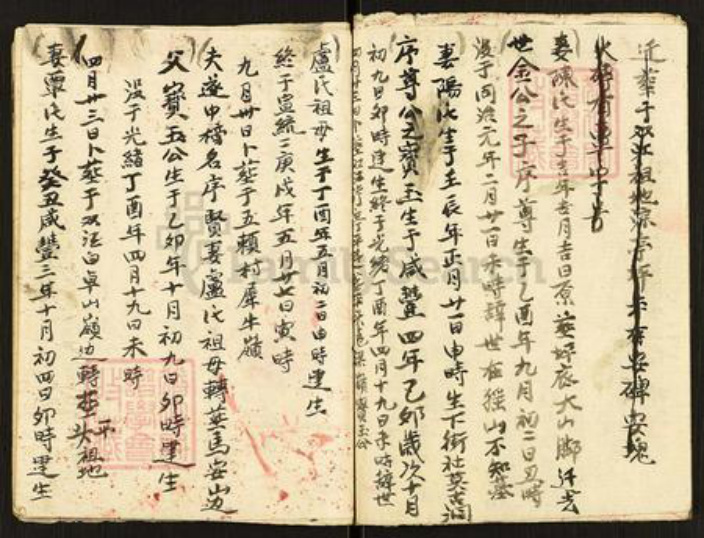 近葬于双江祖地深亭坪平有安碑安塊
火碑有單字号
妻陳氏生于吉年吉月吉日原葬坭底大山脚迁去
世金公之子序尊生于乙酉年九月初二日丑時
没于同治元年二月廿一日未時辞世在猺山不知墓
妻陽氏生于壬辰年正月廿一日申時生下街社莫古洞
序尊公元寳玉生于咸豐四年乙卯歲次十月
初九日卯時建生終于光绪丁酉年四月十九日未時辞世
四月廿三日
盧氏祖母生于丁酉年五月初二日申時建生
終于宣統二庚戌年五月廿七日寅時
九月廿日卜葬于五頼村犀牛嶺
夫遂中榜名序賢妻盧氏祖母轉葬馬安山边
父寳玉公生于乙卯年十月初九日卯時建生
没于光緒丁酉年四月十九日未時
四月廿三日卜葬于双江白卓山嶺边轉塟平头祖地
妻覃氏生于癸丑咸豐三年十月初四日卯時建生
FamilySearch